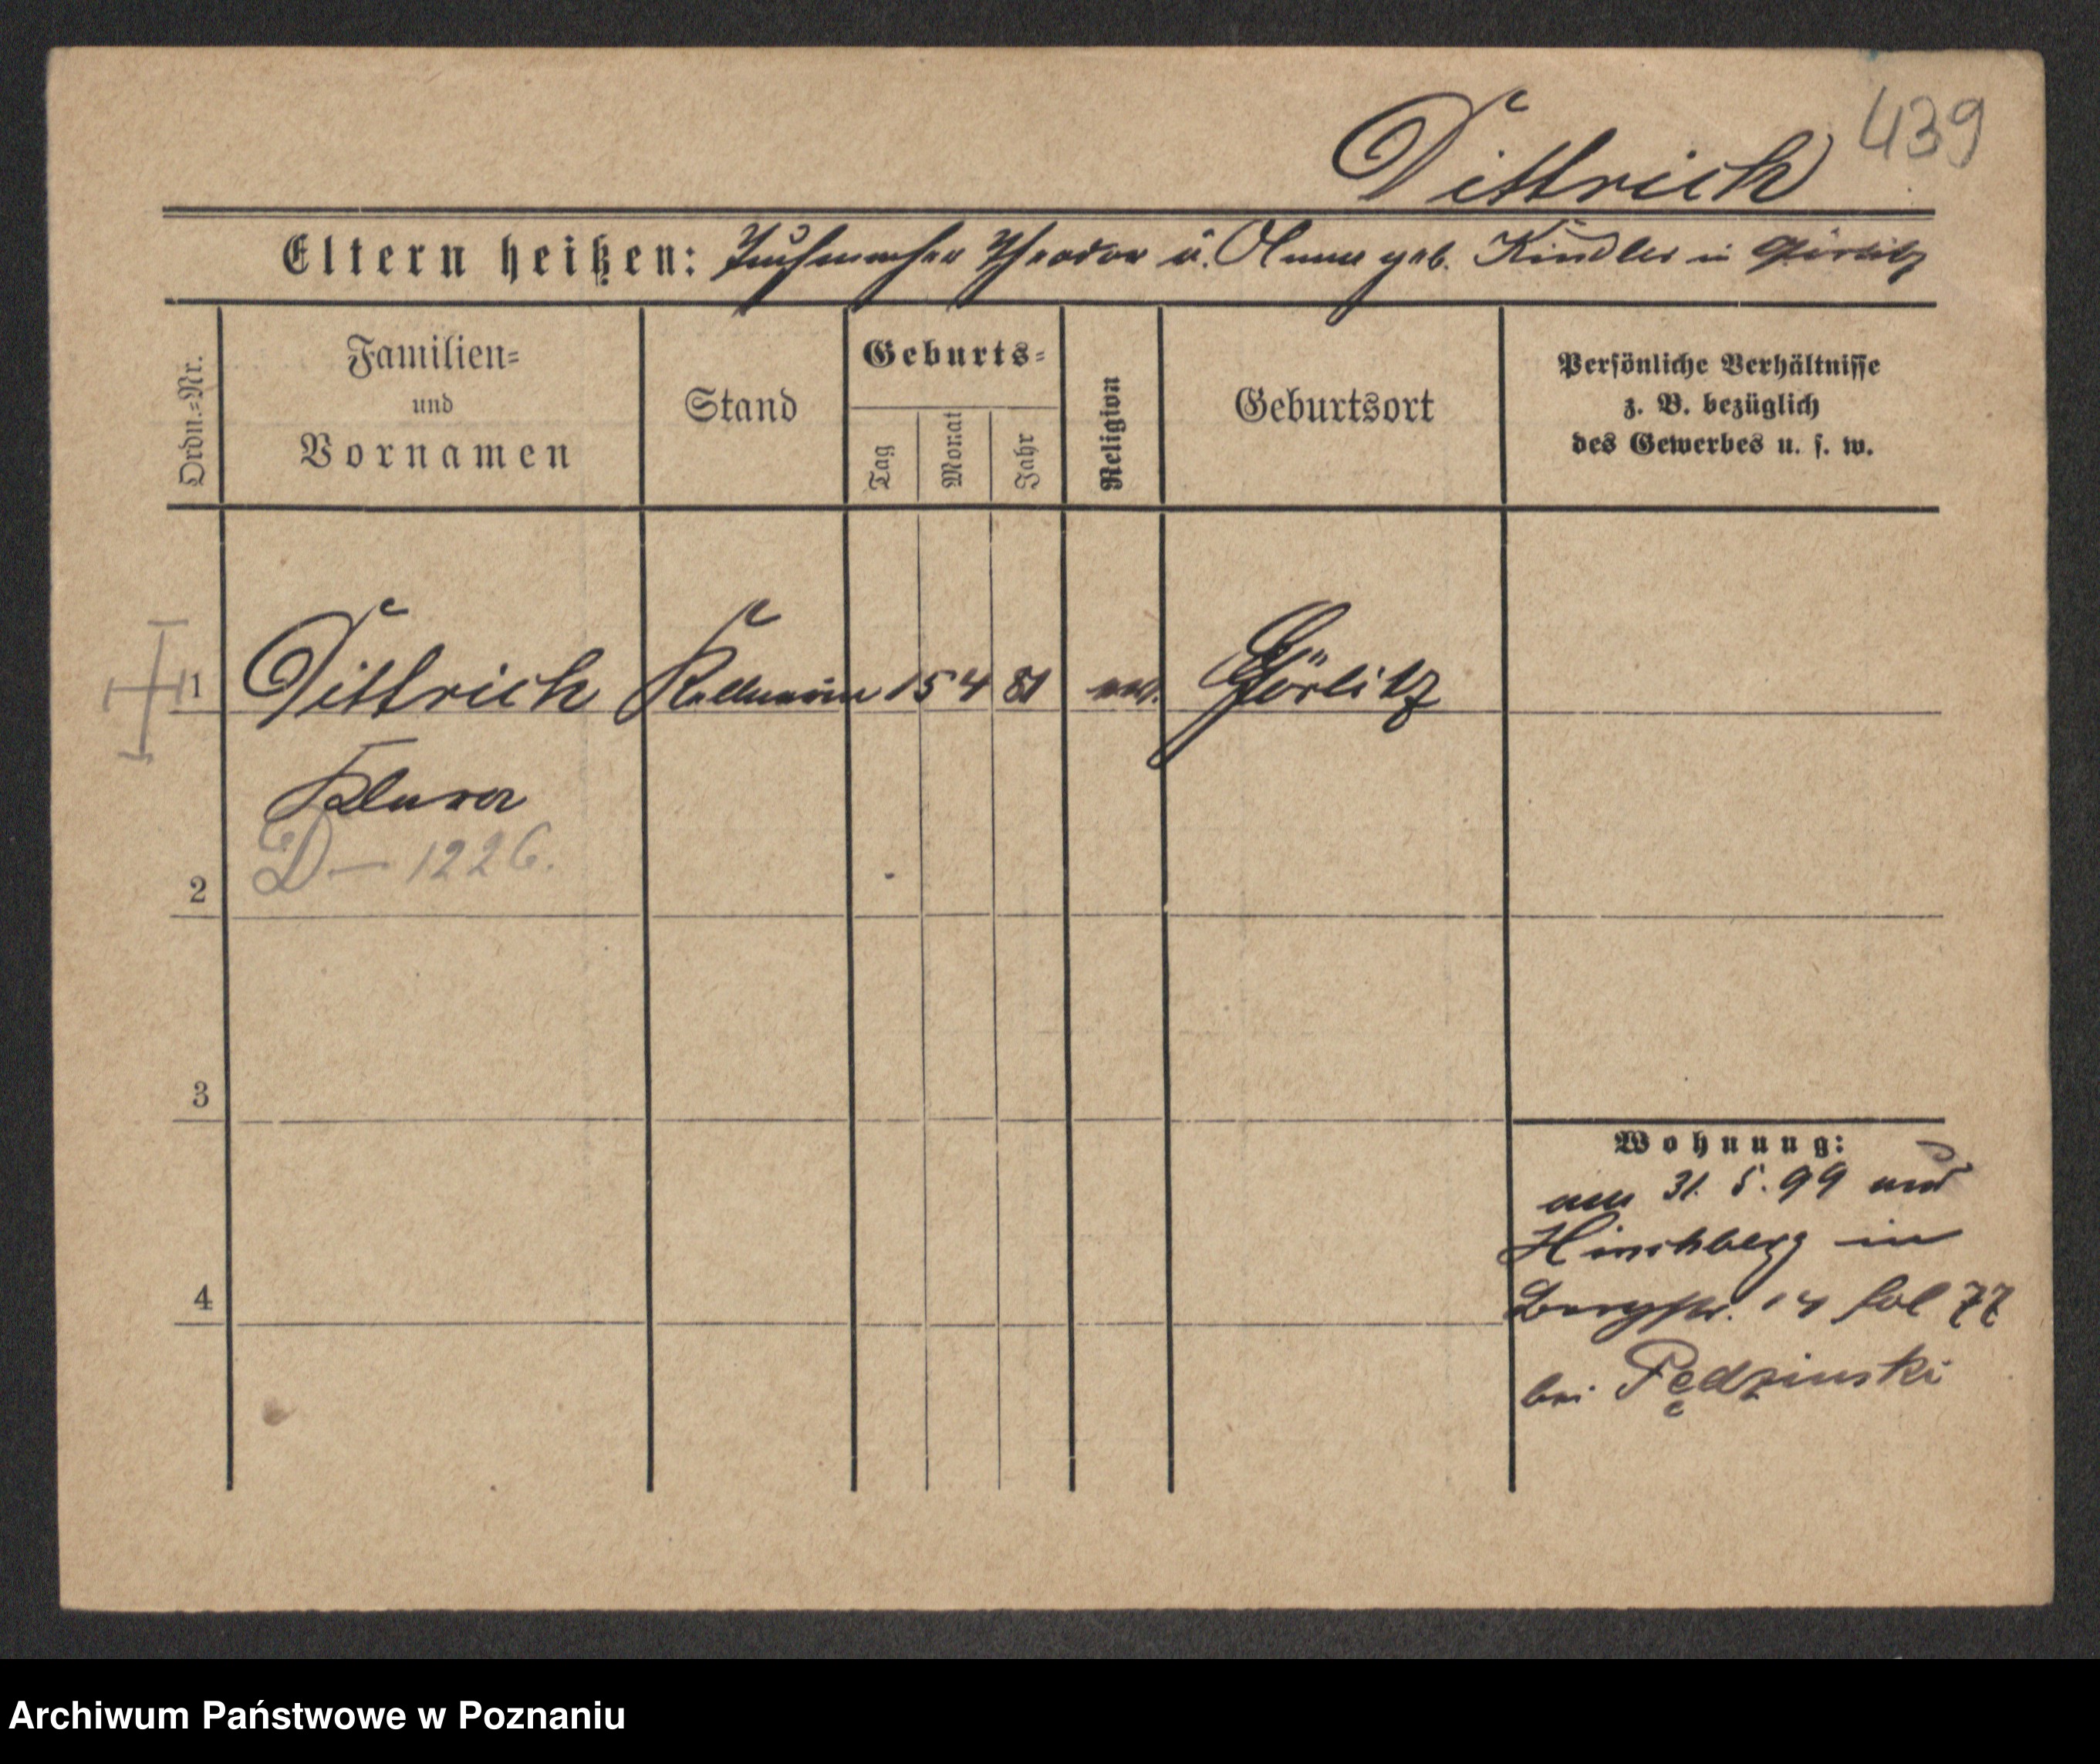 439
Dittrich
Eltern heißen: Tuchmacher Theodor u. Anna geb. Kindler in Görlitz
Ordn.-Nr.
Familien-
und
Vornamen
Stand
Geburts-
Tag
Monat
Jahr
Religion
Geburtsort
Persönliche Verhältnisse
z. B. bezüglich
des Gewerbes u. s. w.
1 Dittrich Kellnerin 15 4 81 Görlitz
Klara
D - 1226.
2
3
4
Wohnung:
am 31. 5. 99 aus
Hirschberg in
Bergstr. 14 fol 77
bei Pędzinski
Archiwum Państwowe w Poznaniu